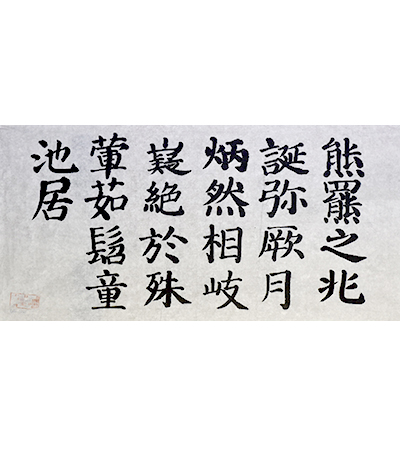 熊羆之兆
誕弥厥月
炳然相岐
嶷絶於殊
葷茹髫童
池居